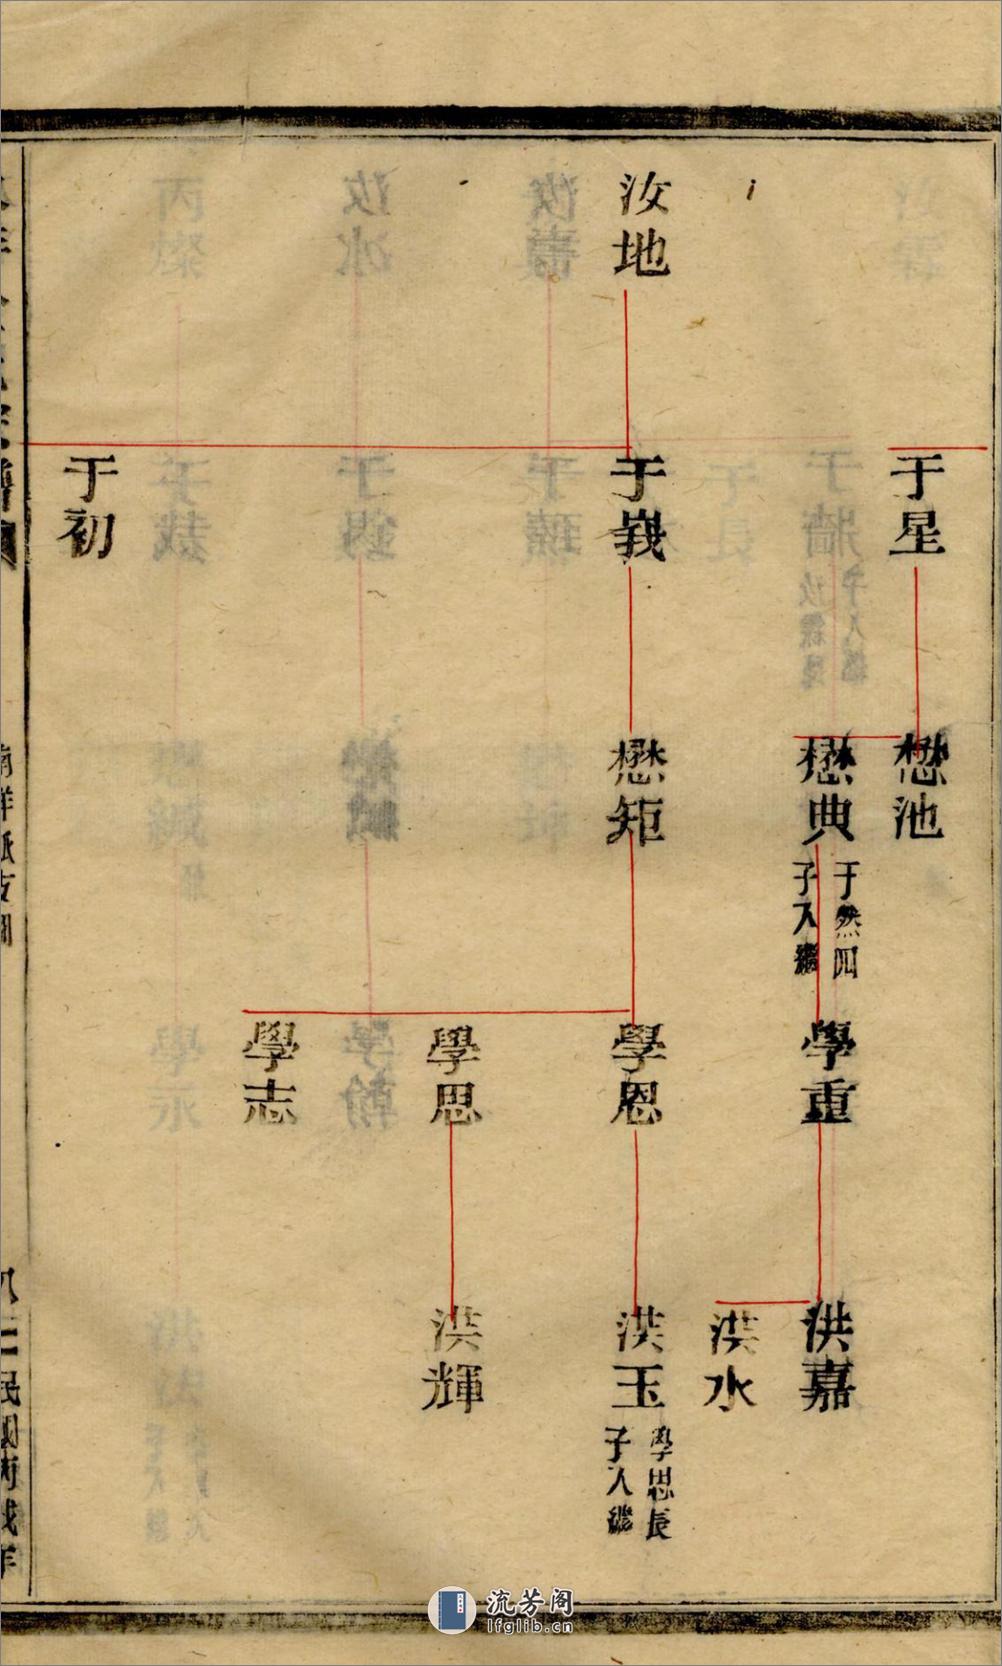 汝地
于星
于峩
于初
懋池
懋典
于然四
子入繼
懋矩
學重
學恩
學思
學志
洪嘉
洪水
洪玉
學思長
子入繼
洪輝
民國丙戌年
流芳阁
lfglib.cn